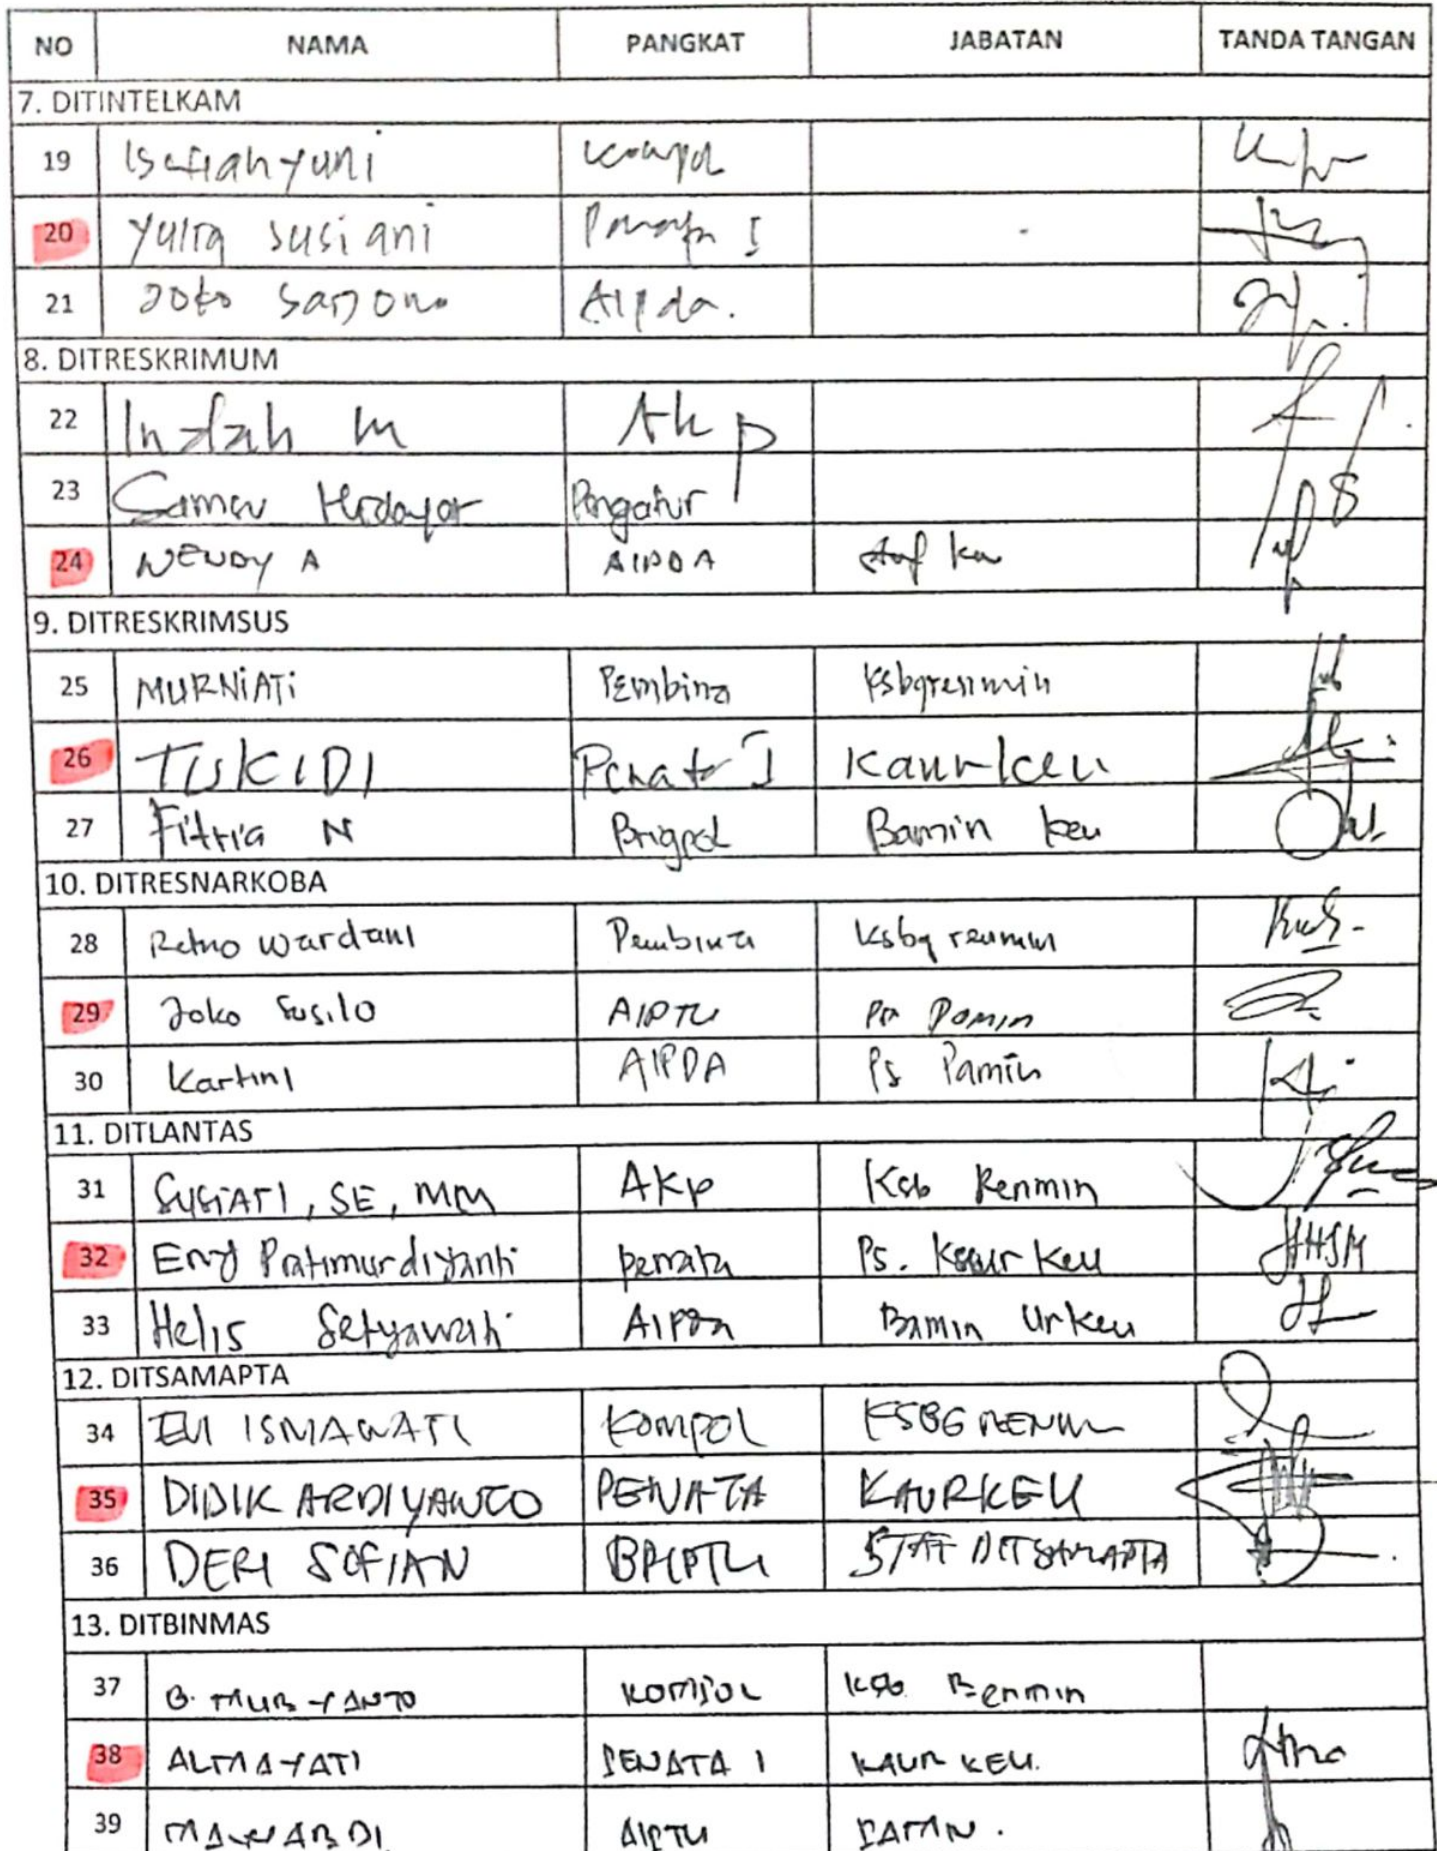 NO NAMA PANGKAT JABATAN TANDA TANGAN
7. DITINTELKAM
19 Kompol
20 Yulia Susiani I
21 Joko Sarjono Aipda.
8. DITRESKRIMUM
22 Indah M Akp
23 Pengatur
24 WENDY A AIPDA
9. DITRESKRIMSUS
25 MURNiATi Pembina Ksbgrenmin
26 TUKIDI Penata I Kaurkeu
27 Fitria N Brigpol Bamin keu
10. DITRESNARKOBA
28 Retno Wardani Pembina Ksbg renmin
29 Joko Susilo AIPTU Pamin
30 Kartini AIPDA Ps Pamin
11. DITLANTAS
31 SUSiATI, SE, MM AKP Renmin
32 Eny Pratimurdiyanti Penata Ps. Kaur Keu
33 Helis Setyawati AIPDA Bamin Urkeu
12. DITSAMAPTA
34 ISMAWATI KOMPOL
35 DIDIK ARDIYANTO PENATA KAURKEU
36 DERI SOFIAN STAF DITSAMAPTA
13. DITBINMAS
37 KOMPOL Renmin
38 ALMAYATI PENATA I KAUR KEU.
39 MAWARDI AIPTU PAMIN.